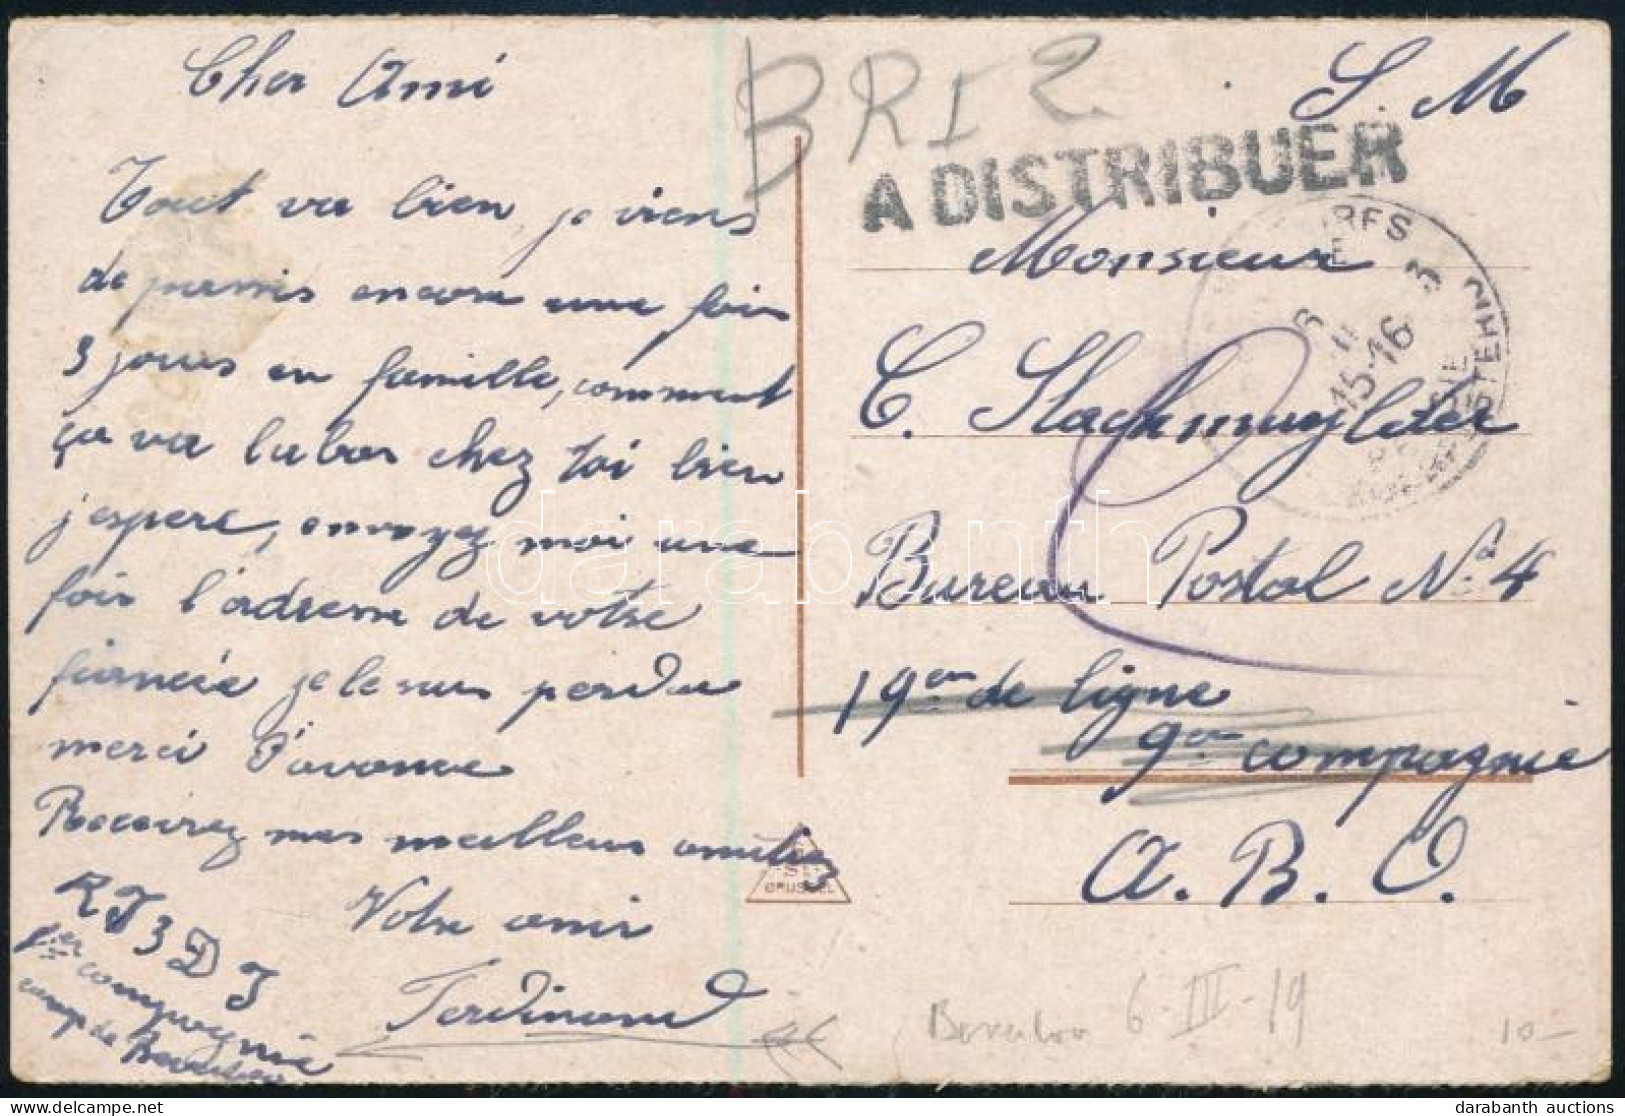 Cher Ami
Tout va bien je viens
de permis encore une fois
3 jours en famille, comment
ça va labas chez toi bien
j'espere, envoyez moi une
fois l'adresse de votre
fiancée je le suis perdu
merci d'avance
Recevez mes meilleurs amitiés
Votre ami
Ferdinand
R J 3 D J
1er compagnie
camp de Beverloo
BRI 2.
S. M
A DISTRIBUER
Monsieur
C. Slachmuylder
Bureau Postal No. 4
19em de ligne
9em compagnie
A. B. O.
6
15-16
3
BRUSSEL
Beverloo 6-III-19
10-
darabanth
darabanth auctions